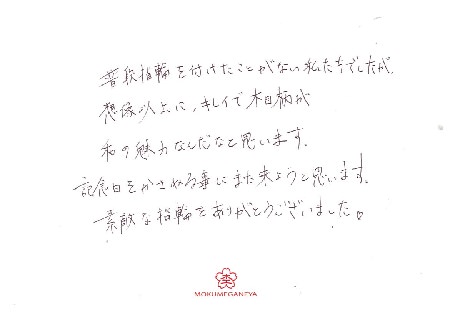 普段指輪を付けたことがない私たちでしたが、
想像以上に、キレイで木目柄が
和の魅力なんだなと思います。
記念日をかさねる毎にまた来ようと思います。
素敵な指輪をありがとうございました。
MOKUMEGANEYA